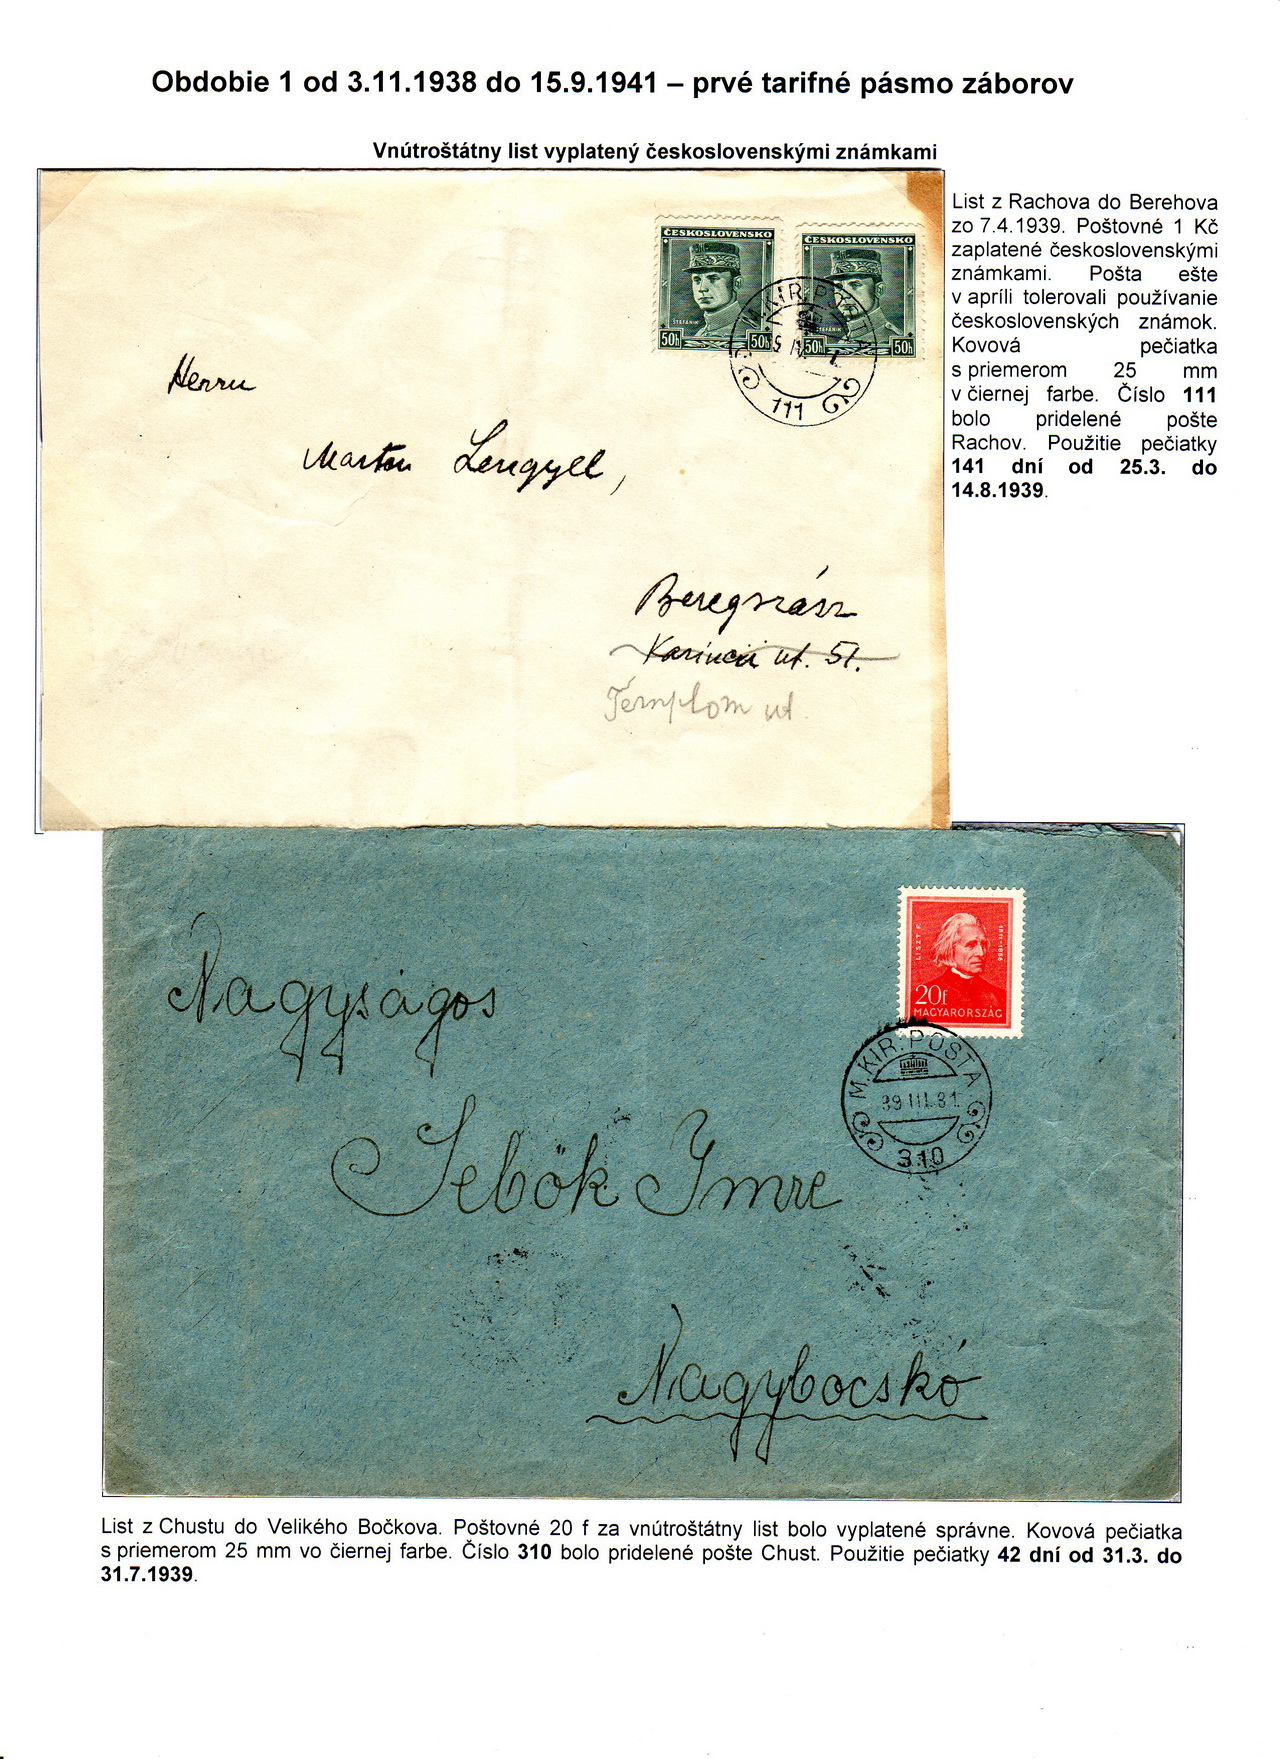 Obdobie 1 od 3.11.1938 do 15.9.1941 – prvé tarifné pásmo záborov
Vnútroštátny list vyplatený československými známkami
List z Rachova do Berehova
zo 7.4.1939. Poštovné 1 Kč
zaplatené československými
známkami. Pošta ešte
v apríli tolerovali používanie
československých známok.
Kovová pečiatka
s priemerom 25 mm
v čiernej farbe. Číslo 111
bolo pridelené pošte
Rachov. Použitie pečiatky
141 dní od 25.3. do
14.8.1939.
ČESKOSLOVENSKO
ŠTEFÁNIK
50h 50h
ČESKOSLOVENSKO
ŠTEFÁNIK
50h 50h
M. KIR. POSTA
111
Herrn
Martin Lengyel,
Beregszász
ut. 51.
Templom ut
LISZT F. 1811-1886
20f
MAGYARORSZÁG
M. KIR. POSTA
39 III. 31.
310
Nagyságos
Sebők Imre
Nagybocskó
List z Chustu do Velikého Bočkova. Poštovné 20 f za vnútroštátny list bolo vyplatené správne. Kovová pečiatka
s priemerom 25 mm vo čiernej farbe. Číslo 310 bolo pridelené pošte Chust. Použitie pečiatky 42 dní od 31.3. do
31.7.1939.